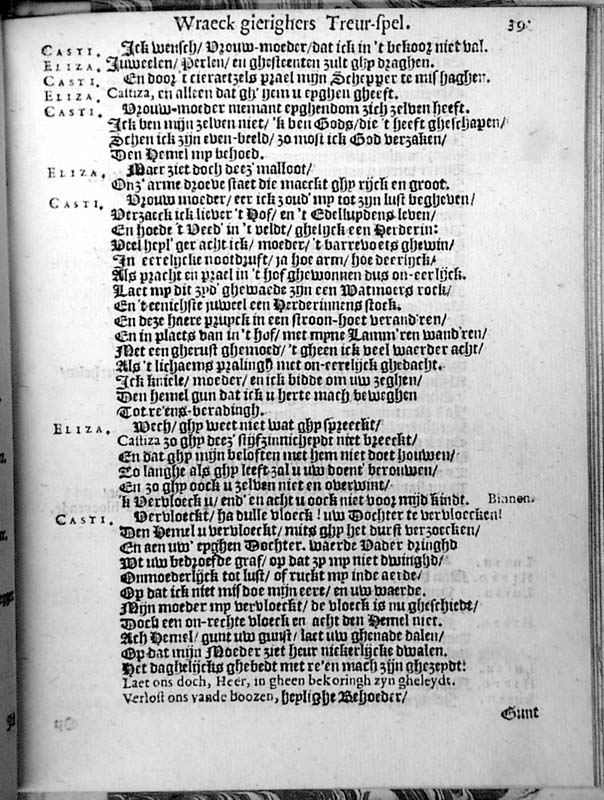 Wraeck gierighers Treur-spel. 39.
CASTI. Ick wensch/ Vrouw-moeder/ dat ick in 't bekoor niet val.
ELIZA. Juweelen/ Perlen/ en ghesteenten zult ghy draghen.
CASTI. En door 't cieraetzels prael mijn Schepper te mishaghen.
ELIZA. Castiza, en alleen dat gh' hem u eyghen gheeft.
CASTI. Vrouw-moeder niemant eyghendom zich zelven heeft.
Ick ben mijn zelven niet/ 'k ben Gods/ die 't heeft gheschapen/
Schen ick zijn even-beeld/ zo most ick God verzaken/
Den Hemel my behoed.
ELIZA. Maer ziet doch deez' malloot/
Onz' arme droeve staet die maeckt ghy rijck en groot.
CASTI. Vrouw moeder/ eer ick zoud' my tot zijn lust begheven/
Verzaeck ick liever 't Hof/ en 't Edelluydens leven/
En hoede 't Veed' in 't veldt/ ghelijck een Herderin:
Veel heyl'ger acht ick/ moeder/ 't barrevoets ghewin/
In eerelycke nootdruft/ ja hoe arm/ hoe deerlijck/
Als pracht en prael in 't hof ghewonnen dus on-eerlijck.
Laet my dit zyd' ghewaede zijn een Watmoers rock/
En 't eenichste juweel een Herderinnens stock.
En deze haere pruyck in een stroon-hoet verand'ren/
En in plaets van in 't hof/ met myne Lamm'ren wand'ren/
Met een gherust ghemoed/ 't gheen ick veel waerder acht/
Als 't lichaems pralingh met on-eerelijck ghedacht.
Ick kniele/ moeder/ en ick bidde om uw zeghen/
Den hemel gun dat ick u herte mach beweghen
Tot re'ens-beradingh.
ELIZA. Wech/ ghy weet niet wat ghy spreeckt/
Castiza zo ghy deez' stijfzinnicheydt niet breeckt/
En dat ghy mijn beloften met hem niet doet houwen/
Zo langhe als ghy leeft zal u uw doent' berouwen/
En zo ghy oock u zelven niet en overwint/
'k Vervloeck u/ end' en acht u oock niet voor mijd kindt. Binnen.
CASTI. Vervloeckt/ ha dulle vloeck! uw Dochter te vervloecken!
Den Hemel u vervloeckt/ mits ghy het durst verzoecken/
En aen uw' eyghen Dochter. waerde Vader dringhd
Wt uw bedroefde graf/ op dat zy my niet dwinghd/
Onmoederlijck tot lust/ of ruckt my inde aerde/
Op dat ick niet mis doe mijn eere/ en uw waerde.
Mijn moeder my vervloeckt/ de vloeck is nu gheschiedt/
Doch een on-rechte vloeck en acht den Hemel niet.
Ach Hemel/ gunt uw gunst/ laet uw ghenade dalen/
Op dat mijn Moeder ziet heur nickerlijcke dwalen.
Het daghelijcks ghebedt met re'en mach zijn ghezeydt!
Laet ons doch, Heer, in gheen bekoringh zyn gheleydt.
Verlost ons vande boozen, heylighe Behoeder/
Gunt